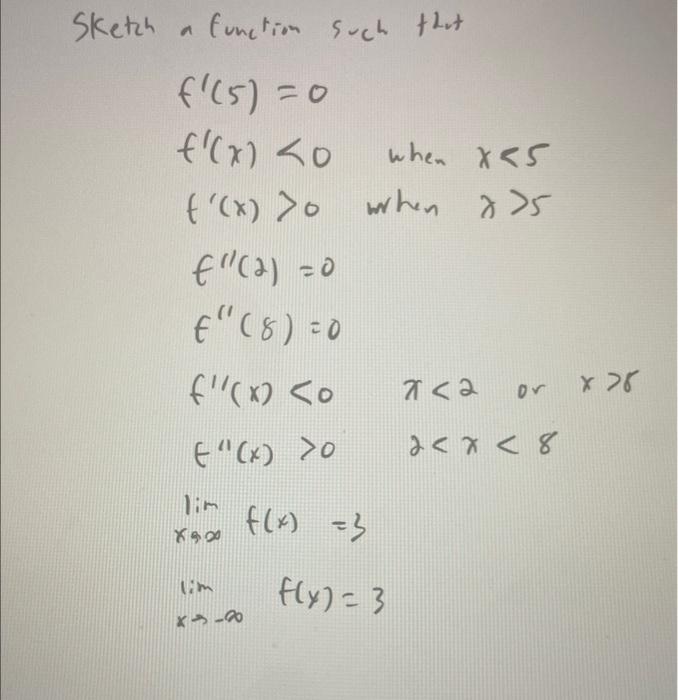 Sketch a function such that
f'(5) = 0
f'(x) < 0 when x < 5
f'(x) > 0 when x > 5
f''(2) = 0
f''(8) = 0
f''(x) < 0 x < 2 or x > 8
f''(x) > 0 2 < x < 8
lim x→∞ f(x) = 3
lim x→-∞ f(x) = 3